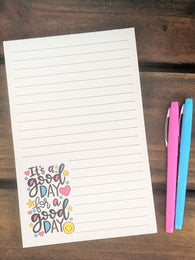 It's a
good
DAY
for a
good
DAY